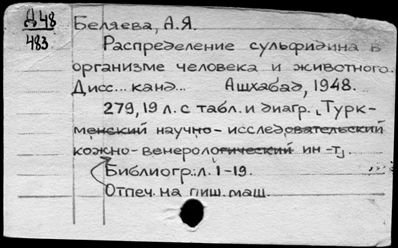 Д48
483
Беляева, А.Я.
Распределение сульфидина в
организме человека и животного.
Дисс... канд... Ашхабад, 1948.
279, 19 л. с табл. и диагр. (Турк-
менский научно-исследовательский
кожно-венерологический ин-т).
Библиогр.: л. 1-19.
Отпеч. на пиш. маш.